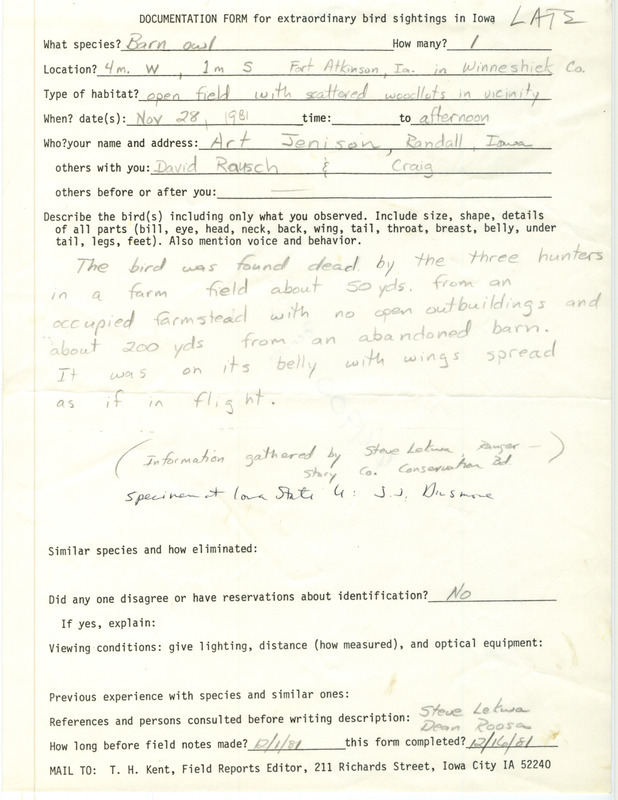 DOCUMENTATION FORM for extraordinary bird sightings in Iowa LATE
What species? Barn owl How many? 1
Location? 4m. W , 1m S Fort Atkinson, Ia. in Winneshiek Co.
Type of habitat? open field with scattered woodlots in vicinity
When? date(s): Nov 28, 1981 time: to afternoon
Who?your name and address: Art Jenison, Randall, Iowa
others with you: David Rausch & Craig
others before or after you:
Describe the bird(s) including only what you observed. Include size, shape, details
of all parts (bill, eye, head, neck, back, wing, tail, throat, breast, belly, under
tail, legs, feet). Also mention voice and behavior.
The bird was found dead by the three hunters
in a farm field about 50 yds. from an
occupied farmstead with no open outbuildings and
about 200 yds from an abandoned barn.
It was on its belly with wings spread
as if in flight.
(Information gathered by Steve Lekwa, Ranger —)
Story Co. Conservation Bd.
specimen at Iowa State U: J.J. Dinsmore
Similar species and how eliminated:
Did any one disagree or have reservations about identification? No
If yes, explain:
Viewing conditions: give lighting, distance (how measured), and optical equipment:
Previous experience with species and similar ones:
References and persons consulted before writing description: Steve Lekwa
Dean Roosa
How long before field notes made? 12/1/81 this form completed? 12/16/81
MAIL TO: T. H. Kent, Field Reports Editor, 211 Richards Street, Iowa City IA 52240